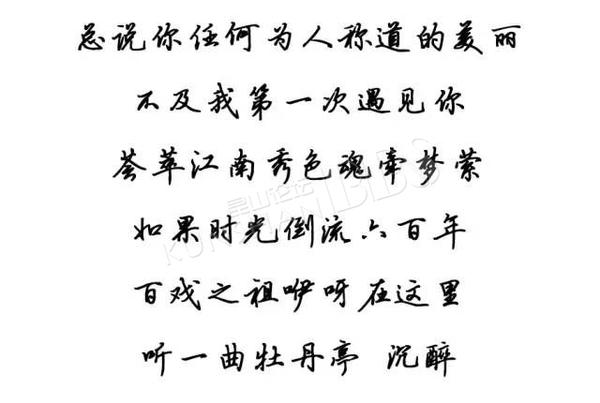 总说你任何为人称道的美丽
不及我第一次遇见你
荟萃江南秀色魂牵梦萦
如果时光倒流六百年
百戏之祖咿呀在这里
听一曲牡丹亭 沉醉
昆山论坛
KUNSHAN BBS